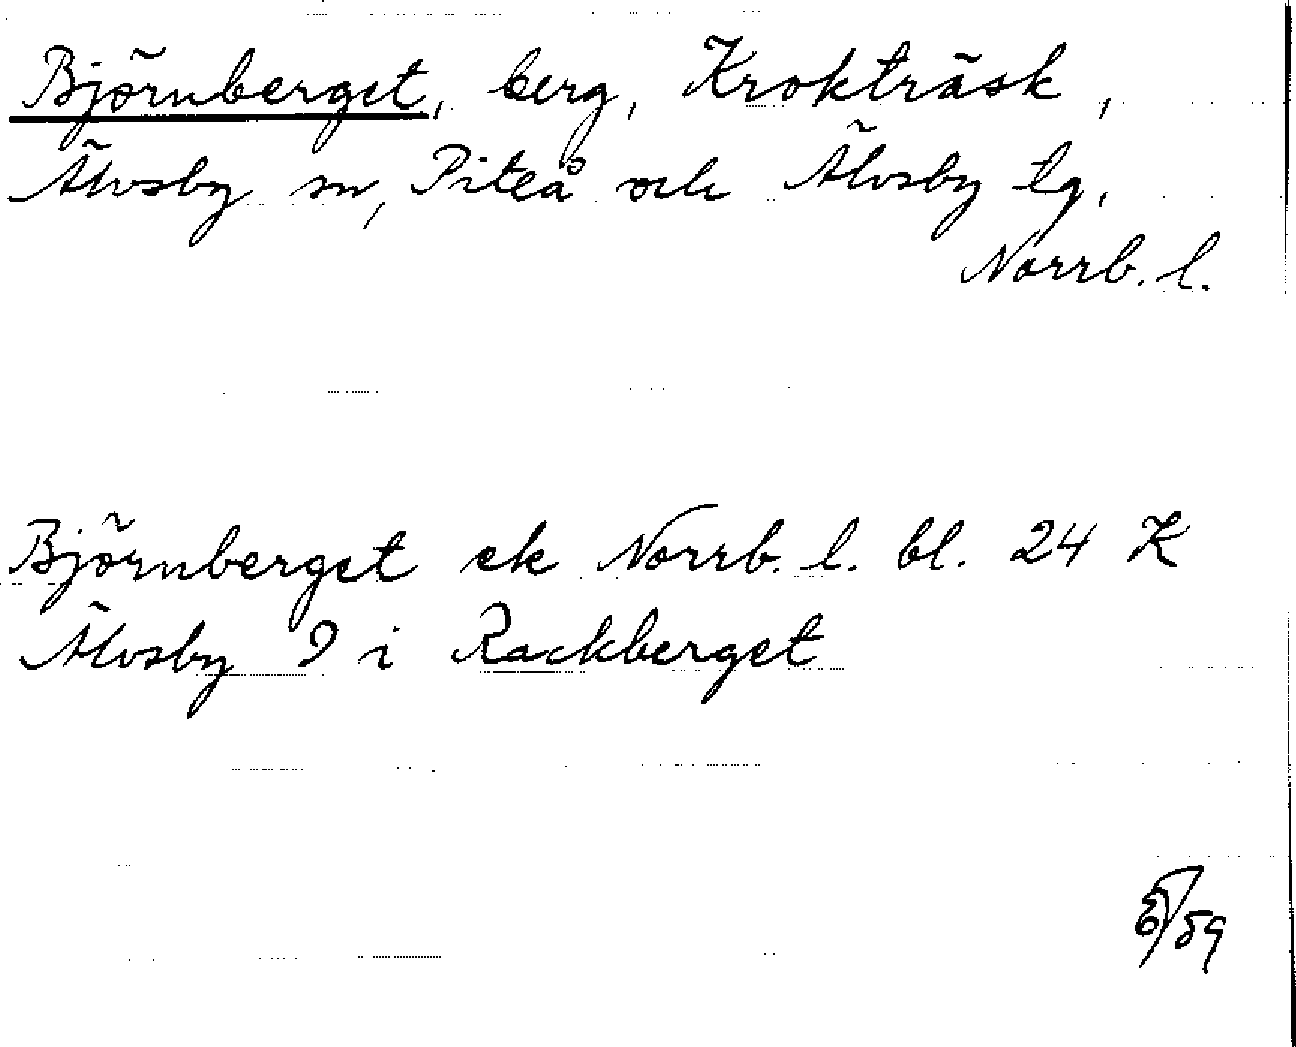 Björnberget, berg, Krokträsk,
Älvsby sn, Piteå och Älvsby tg.
Norrb. l.
Björnberget ek Norrb. l. bl. 24 K
Älvsby 9 i Rackberget
/59